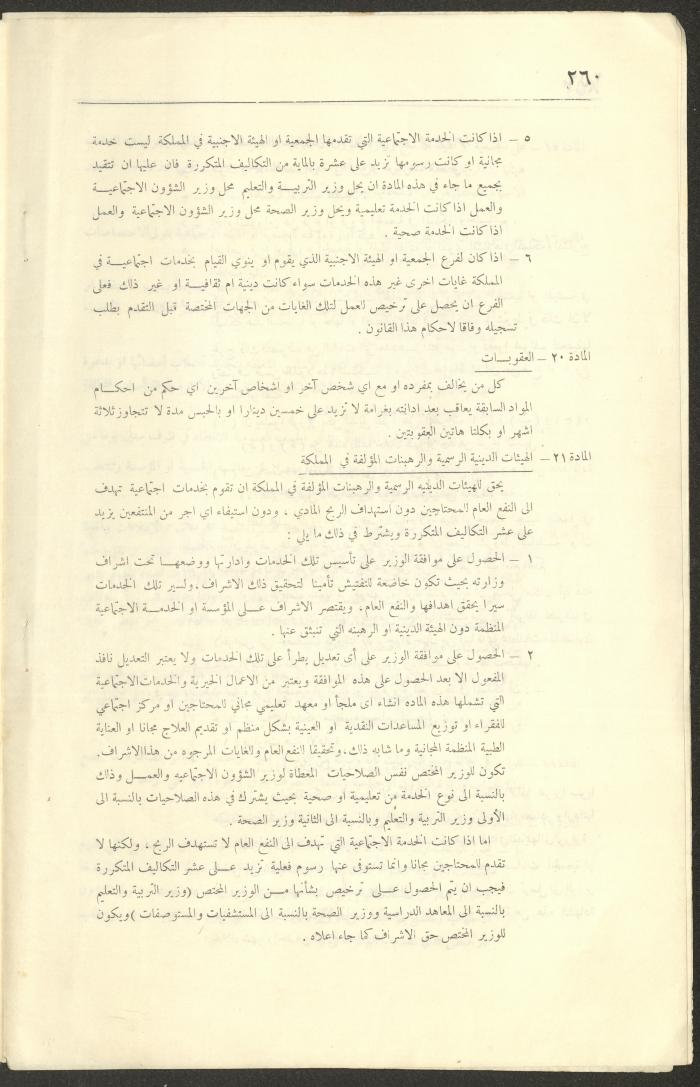 ٢٦٠
٥ – اذا كانت الخدمة الاجتماعية التي تقدمها الجمعية او الهيئة الاجنبية في المملكة ليست خدمة
مجانية او كانت رسومها تزيد على عشرة بالماية من التكاليف المتكررة فان عليها ان تتقيد
بجميع ما جاء في هذه المادة ان يحل وزير التربيـــة والتعليم محل وزير الشؤون الاجتماعيــة
والعمل اذا كانت الخدمة تعليمية ويحل وزير الصحة محل وزير الشؤون الاجتماعية والعمل
اذا كانت الخدمة صحية .
٦ – اذا كان لفرع الجمعية او الهيئة الاجنبية الذي يقوم او ينوي القيام بخدمات اجتماعيـــة في
المملكة غايات اخرى غير هذه الخدمات سواء كانت دينية ام ثقافيـــة او غير ذلك فعلى
الفرع ان يحصل على ترخيص للعمل لتلك الغايات من الجهات المختصة قبل التقدم بطلب
تسجيله وفاقا لاحكام هذا القانون .
المادة ٢٠ – العقوبــات
كل من يخالف بمفرده او مع اي شخص آخر او اشخاص آخرين اي حكم من احكـــام
المواد السابقة يعاقب بعد ادانته بغرامة لا تزيد على خمسين دينارا او بالحبس مدة لا تتجاوز ثلاثة
اشهر او بكلتا هاتين العقوبتين .
المادة ٢١ – الهيئات الدينية الرسمية والرهبنات المؤلفة في المملكة
يحق للهيئات الدينيه الرسمية والرهبنات المؤلفة في المملكة ان تقوم بخدمات اجتماعية تهدف
الى النفع العام للمحتاجين دون استهداف الربح المادي ، ودون استيفاء اي اجر من المنتفعين يزيد
على عشر التكاليف المتكررة ويشترط في ذلك ما يلي :
١ – الحصول على موافقة الوزير على تأسيس تلك الخدمات وادارتها ووضعهـــا تحت اشراف
وزارته بحيث تكون خاضعة للتفتيش تأمينا لتحقيق ذلك الاشراف ، ولسير تلك الخدمات
سيرا يحقق اهدافها والنفع العام ، ويقتصر الاشراف عـــلى المؤسسة او الخدمـــة الاجتماعية
المنظمة دون الهيئة الدينية او الرهبنه التي تنبثق عنها .
٢ – الحصول على موافقة الوزير على أى تعديل يطرأ على تلك الخدمات ولا يعتبر التعديل نافذ
المفعول الا بعد الحصول على هذه الموافقة ويعتبر من الاعمال الخيرية والخدمات الاجتماعية
التي تشملها هذة الماده انشاء اى ملجأ او معهد تعليمي مجاني للمحتاجين او مركز اجتماعي
للفقراء او توزيع المساعدات النقدية او العينية بشكل منظم او تقديم العلاج مجانا او العناية
الطبية المنظمة المجانية وما شابه ذلك ، وتحقيقا للنفع العام وللغايات المرجوه من هذا الاشراف.
تكون للوزير المختص نفس الصلاحيات المعطاة لوزير الشؤون الاجتماعيه والعمـــل وذلك
بالنسبة الى نوع الخدمة من تعليمية او صحية بحيث يشترك في هذه الصلاحيات بالنسبة الى
الأولى وزير التربية والتعليم وبالنسبة الى الثانية وزير الصحة .
اما اذا كانت الخدمة الاجتماعية التي تهدف الى النفع العام لا تستهدف الربح ، ولكنها لا
تقدم للمحتاجين مجانا وانما تستوفى عنها رسوم فعلية تزيد عـــلى عشر التكاليف المتكررة
فيجب ان يتم الحصول عـــلى ترخيص بشأنها مـــن الوزير المختص (وزير التربية والتعليم
بالنسبة الى المعاهد الدراسية ووزير الصحة بالنسبة الى المستشفيات والمستوصفات ) ويكون
للوزير المختص حق الاشراف كما جاء اعلاه .